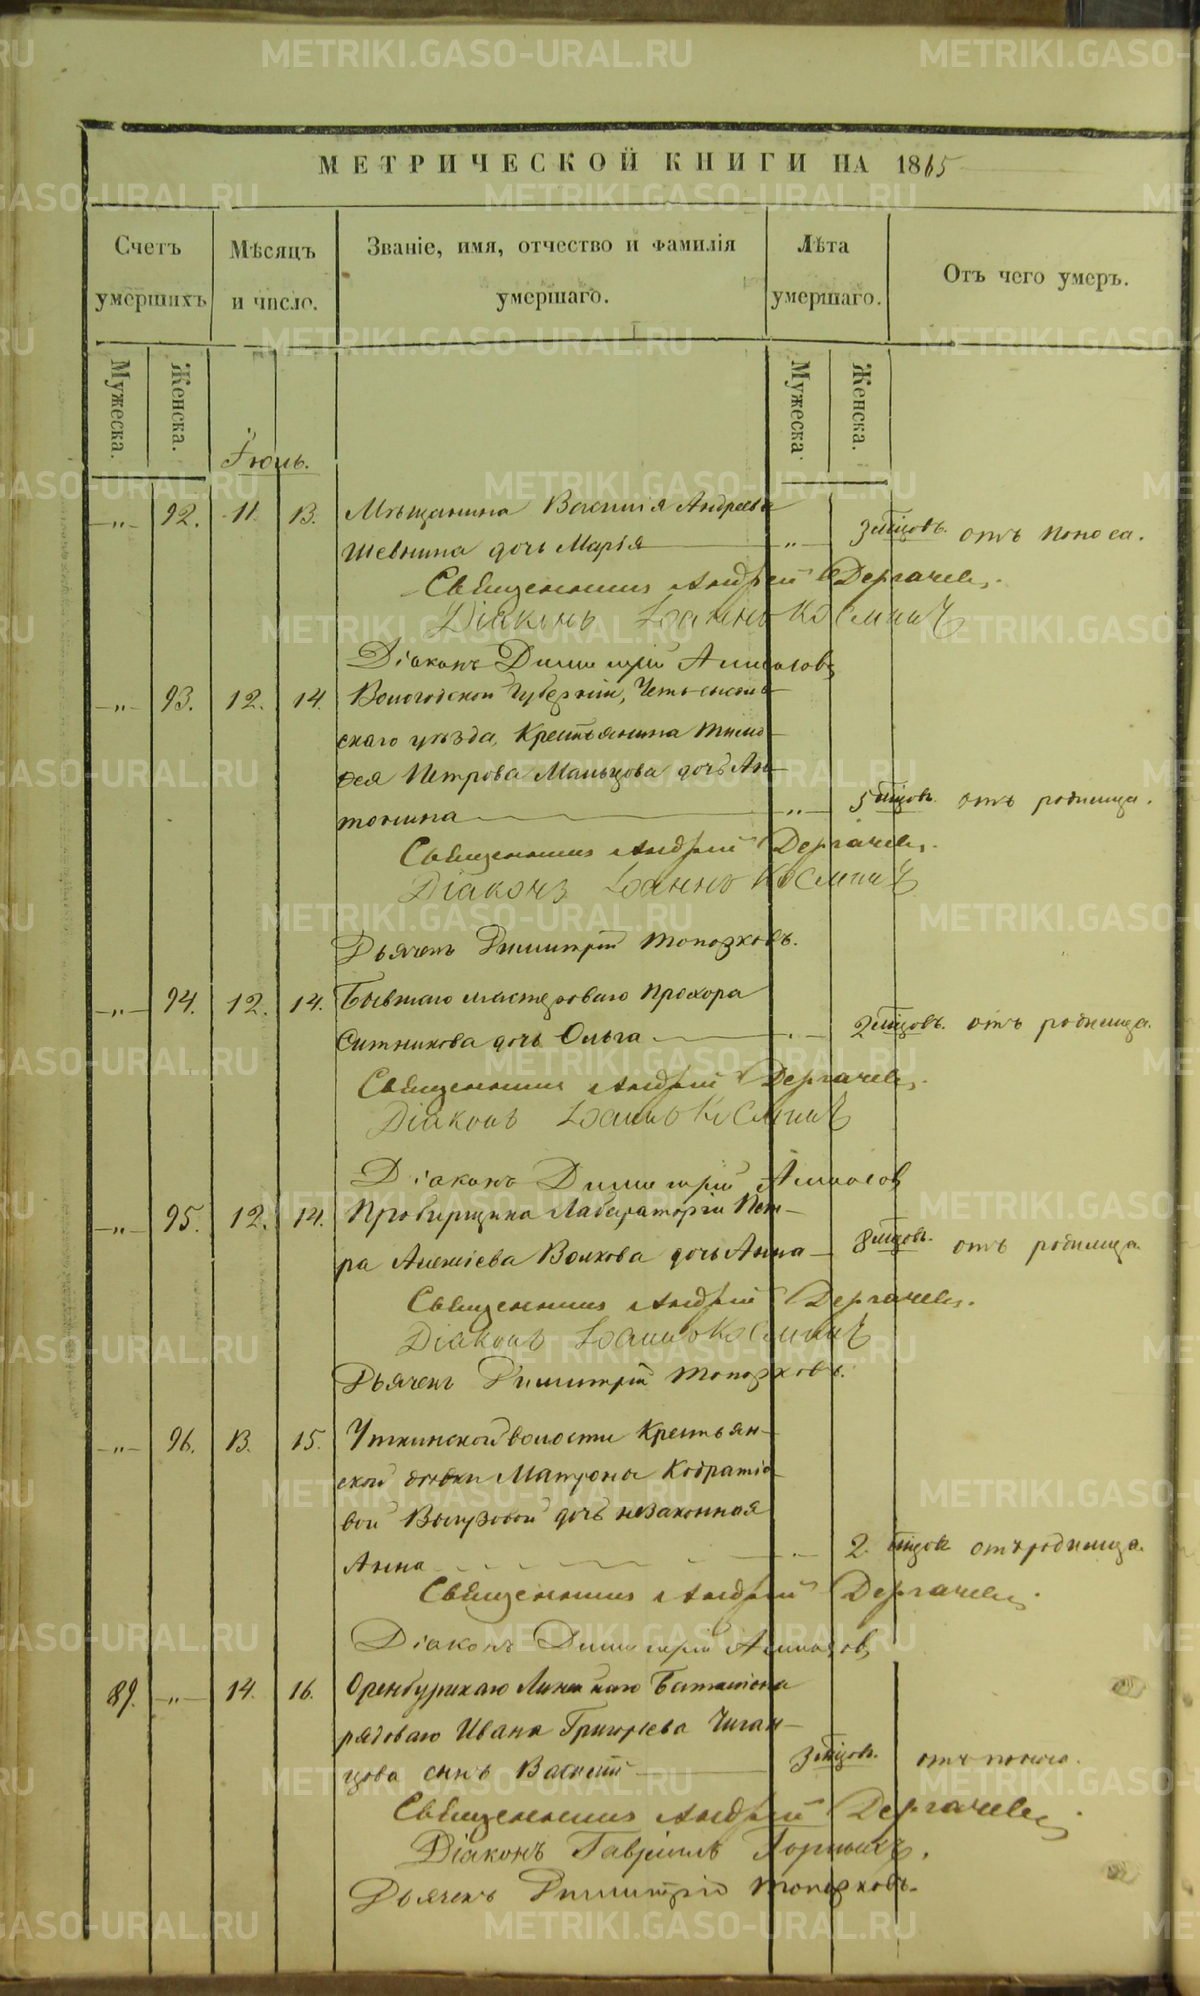 МЕТРИЧЕСКОЙ КНИГИ НА 1865
Счетъ умершихъ
Мѣсяцъ и число.
Званіе, имя, отчество и фамилія умершаго.
Лѣта умершаго.
Отъ чего умеръ.
Мужеска.
Женска.
Мужеска.
Женска.
Іюль.
„ 92. 11. 13. Мѣщанина Василія Андреева
Шевнина дочь Марья „ 3 мѣсяцовъ. отъ поноса.
Священникъ Андрей Дергачевъ.
Діаконъ Іоаннъ Космичъ
Діаконъ Димитрій
„ 93. 12. 14. Вологодской Губерніи,
скаго уѣзда, Крестьянина Тимо-
фея Петрова Мальцова дочь Ан-
тонина „ 5 мѣсяцовъ. отъ родимца.
Священникъ Андрей Дергачевъ.
Діаконъ Іоаннъ Космичъ
Дьячекъ Димитрій Топорковъ.
„ 94. 12. 14. Бывшаго мастероваго Прохора
Ситникова дочь Ольга 2 мѣсяцовъ. отъ родимца.
Священникъ Андрей Дергачевъ.
Діаконъ Іоаннъ Космичъ
Діаконъ Димитрій
„ 95. 12. 14. Пробирщика Лабораторіи Пет-
ра Алексіева Волкова дочь Анна 8 мѣсяцовъ. отъ родимца.
Священникъ Андрей Дергачевъ.
Діаконъ Іоаннъ Космичъ
Дьячекъ Димитрій Топорковъ.
„ 96. 13. 15. Уткинской волости Крестьян-
ской дѣвки Матроны Кодратіе-
вой дочь незаконная
Анна 2. мѣсяцовъ отъ родимца.
Священникъ Андрей Дергачевъ.
Діаконъ Димитрій
89. „ 14. 16. Оренбургскаго Линейнаго Баталіона
рядоваго Ивана Григорьева Чиган-
цова сынъ Василій 3 мѣсяцовъ. отъ поноса.
Священникъ Андрей Дергачевъ
Діаконъ Гавріилъ Горныхъ.
Дьячекъ Димитрій Топорковъ.
METRIKI.GASO-URAL.RU